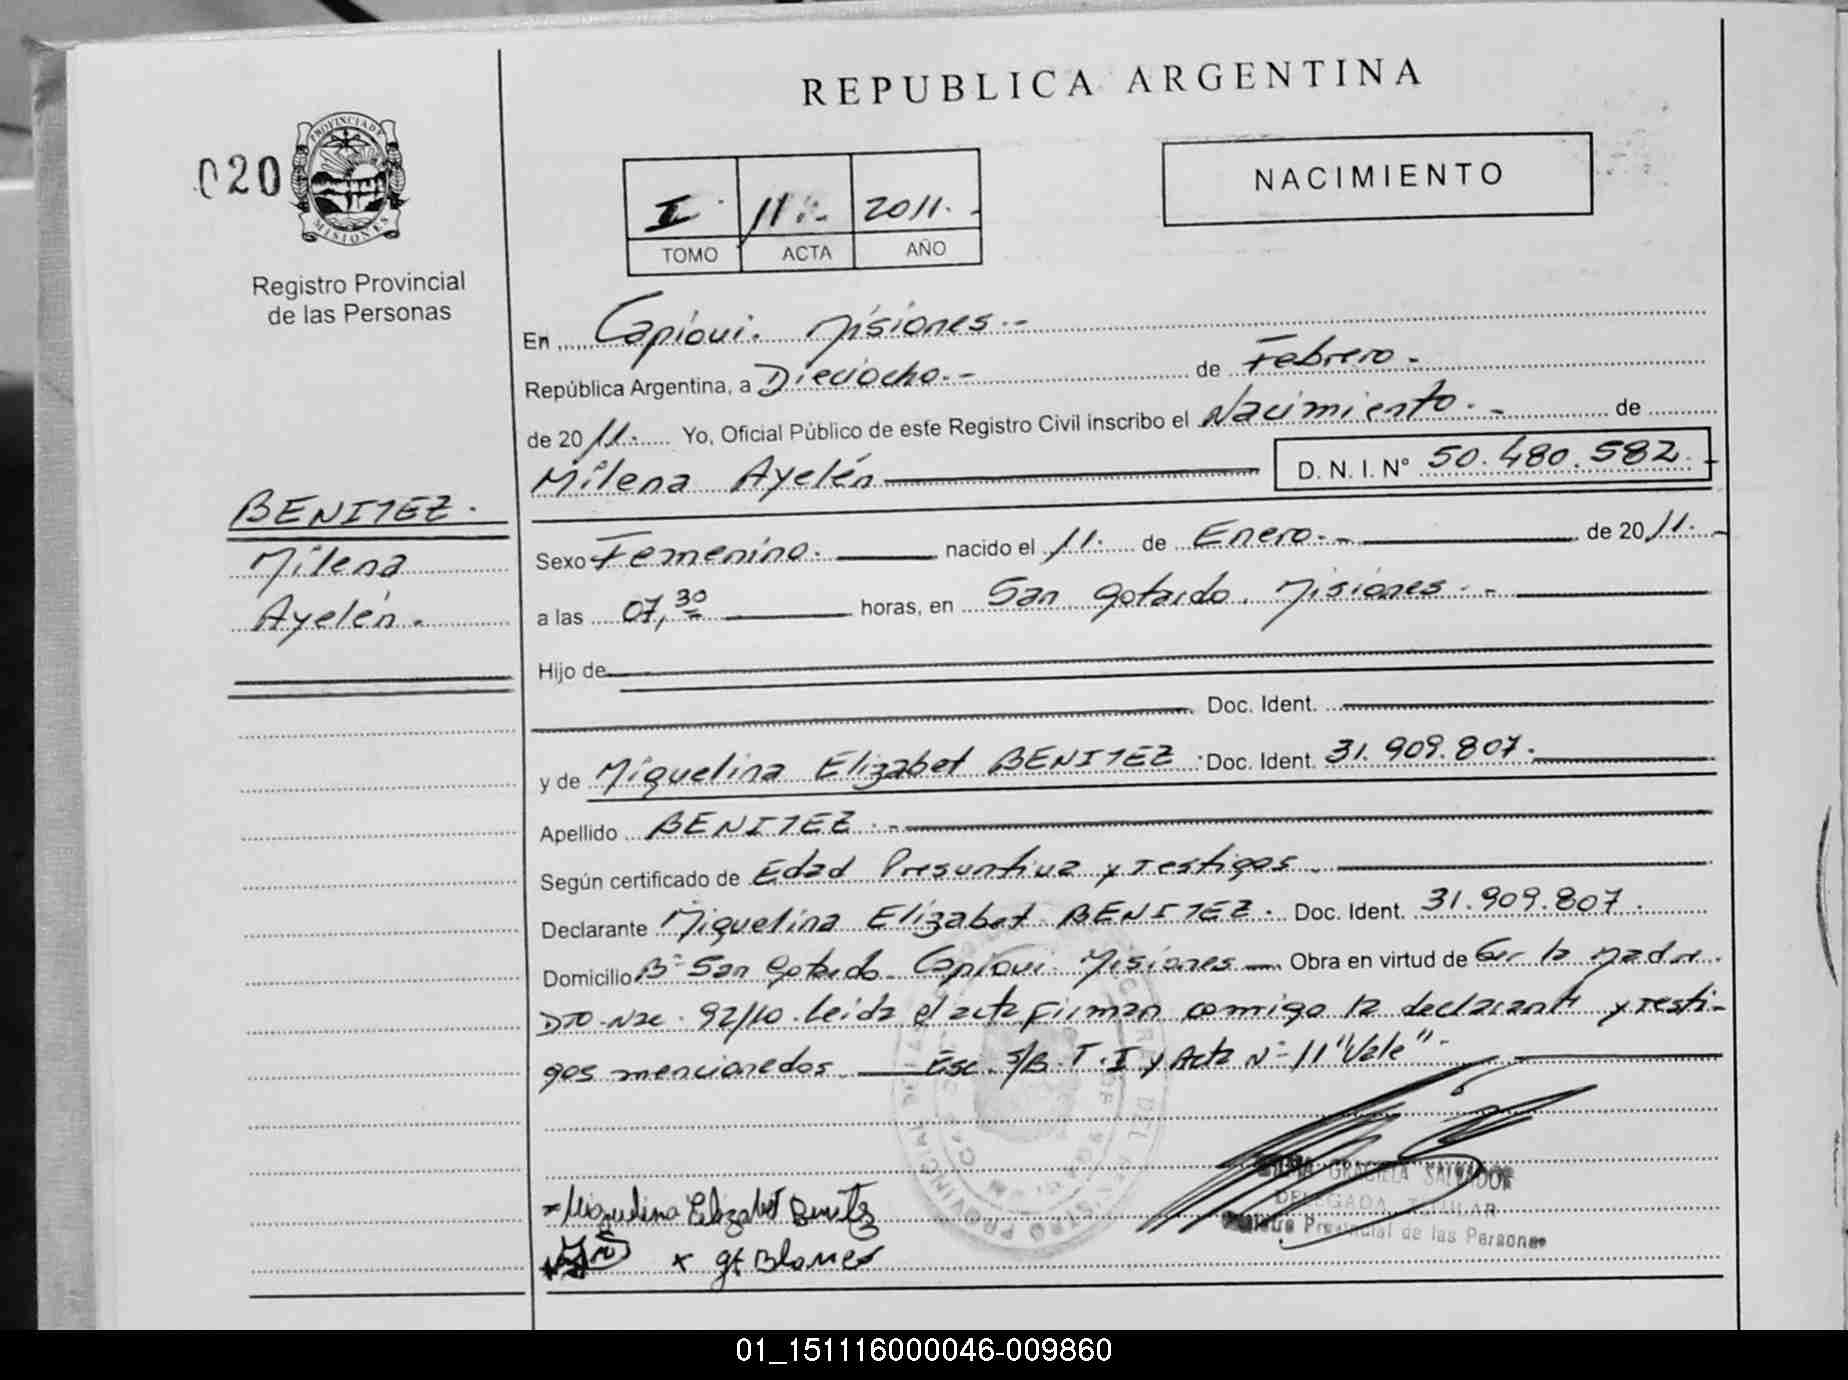 REPUBLICA ARGENTINA
020
PROVINCIA DE
MISIONES
Registro Provincial
de las Personas
I 11 2011.-
TOMO ACTA AÑO
NACIMIENTO
En Capioui. Misiones.-
República Argentina, a Dieciocho.- de Febrero.
de 2011. Yo, Oficial Público de este Registro Civil inscribo el Nacimiento.- de
Milena Ayelén D. N. I. Nº 50.480.582.-
BENITEZ.
Milena
Ayelén.
Sexo Femenino. nacido el 11. de Enero.- de 2011.-
a las 07,30 horas, en San Gotardo. Misiones.-
Hijo de
Doc. Ident.
y de Miquelina Elizabet BENITEZ Doc. Ident. 31.909.807.
Apellido BENITEZ.-
Según certificado de Edad Presuntiva y Testigos.
Declarante Miquelina Elizabet BENITEZ. Doc. Ident. 31.909.807.
Domicilio Bº San Gotardo Capioui. Misiones Obra en virtud de Ser la madre.
DTO-Nac. 92/10. Leida el acta firman conmigo la declarante y testi-
gos mencionados. Esc. S/B. T. I y Acta Nº 11 "Vale".
Miquelina Elizabet Benitez
x
GRACIELA SALVADOR
DELEGADA TITULAR
Registro Provincial de las Personas
01_151116000046-009860